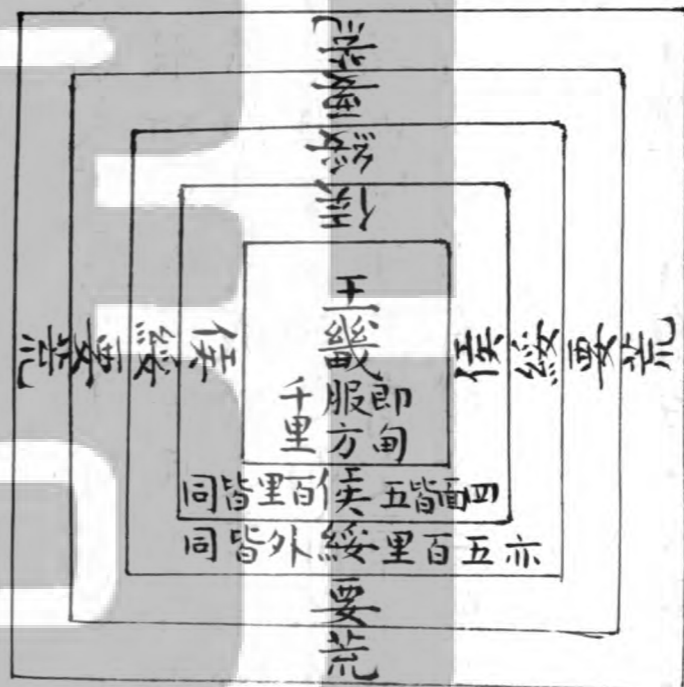 荒
要
綏
侯
荒要綏侯
王畿
即甸
服方
千里
侯綏要荒
四面皆五侯百里皆同
亦五百里綏外皆同
要
荒